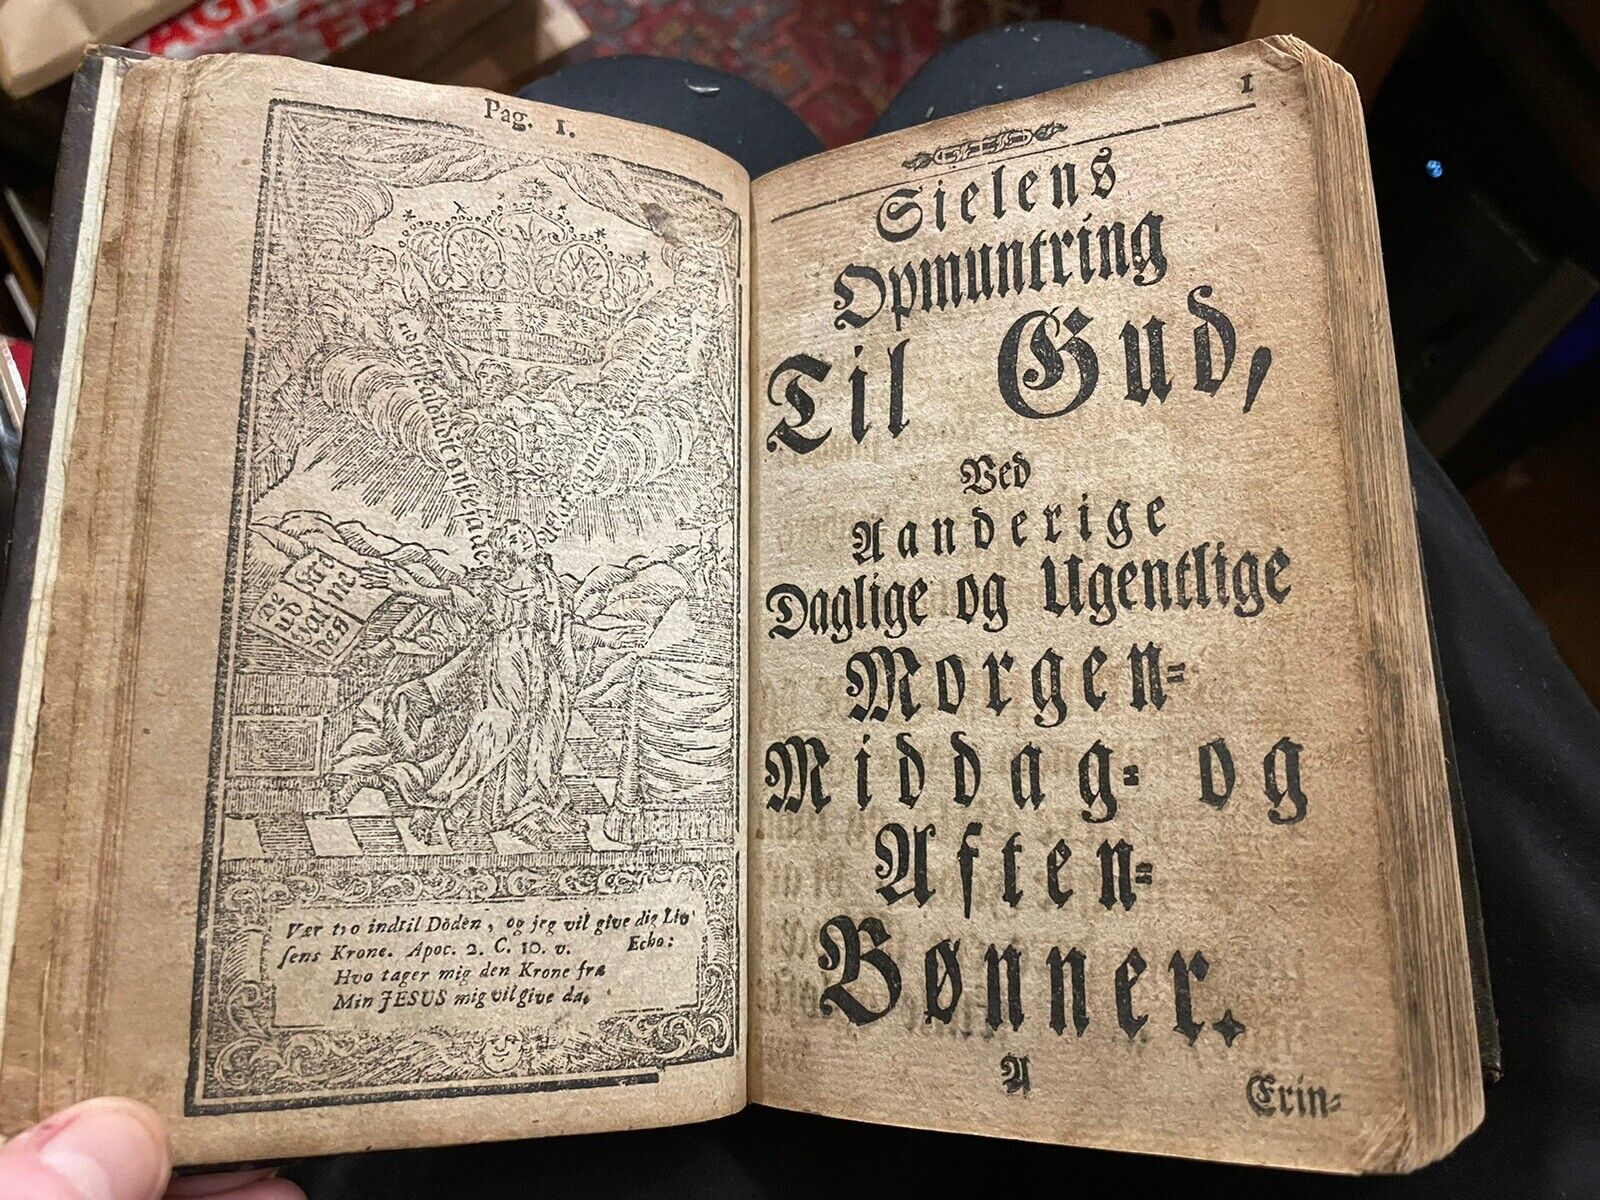 Pag. 1.
De
ud
kaar
ne
den
Vær tro indtil Döden, og jeg vil give dig Liv
sens Krone. Apoc. 2. C. 10. v. Echo:
Hvo tager mig den Krone fra
Min JESUS mig vil give da,
1
Sielens
Opmuntring
Til Gud,
Ved
Aanderige
Daglige og Ugentlige
Morgen-
Middag- og
Aften-
Bønner.
A
Erin-